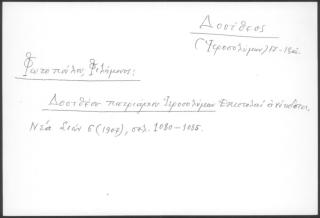 Δοσίθεος
(Ἱεροσολύμων) 17-18αι.
Φωτοπούλος, Φιλήμονος:
Δοσιθέου πατριάρχου Ἱεροσολύμων Ἐπιστολαὶ ἀνέκδοτοι.
Νέα Σιών 5 (1907), σελ. 1080-1085.